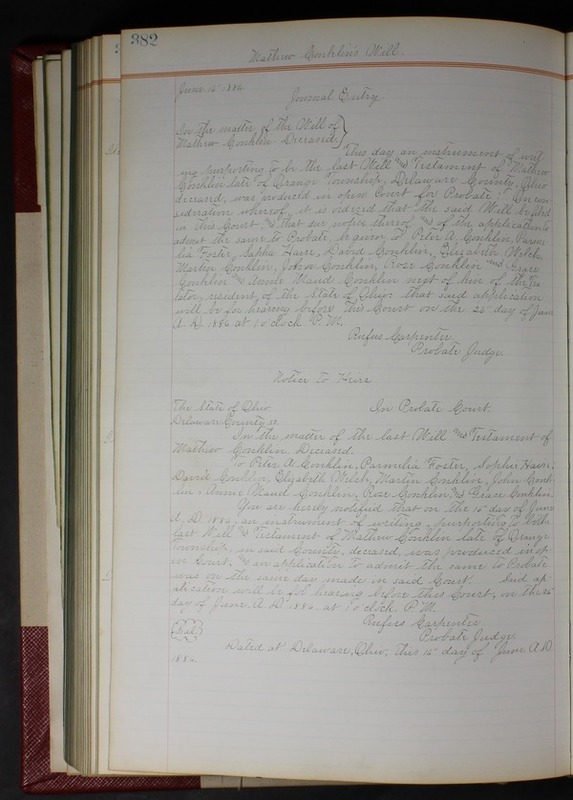 382
Mathew Conklin's Will.
June 15" 1886.
Journal Entry
In the matter of the Will of
Mathew Conklin Deceased.
This day an instrument of writ
ing purporting to be the last Will and Testament of Mathew
Conklin late of Orange Township, Delaware County, Ohio
deceased, was produced in open Court for Probate. On con
sideration whereof, it is ordered that the said Will be filed
in this Court; and that due notice thereof and of the application to
admit the same to Probate, be given to Peter A. Conklin, Parme
lia Foster, Sophia Haire, David Conklin, Elizabeth Welch,
Martin Conklin, John Conklin, Rose Conklin and Grace
Conklin and Annie Maud Conklin next of kin of the Tes
tator, resident of the State of Ohio: that said application
will be for hearing before this Court on the 26" day of June
A. D. 1886 at 1 o'clock P. M.
Rufus Carpenter
Probate Judge.
Notice to Heirs
The State of Ohio
In Probate Court.
Delaware County ss.
In the matter of the last Will and Testament of
Mathew Conklin Deceased.
To Peter A Conklin, Parmelia Foster, Sophia Haire,
David Conklin, Elizabeth Welch, Martin Conklin, John Conk
lin, Annie Maud Conklin, Rose Conklin, and Grace Conklin.
You are hereby notified that on the 15" day of June
A. D. 1886, an instrument of writing, purporting to be the
last Will and Testament of Mathew Conklin late of Orange
Township, in said County, deceased, was produced in op
en Court, and an application to admit the same to Probate
was on the same day made in said Court. Said ap
plication will be for hearing before this Court, on the 26"
day of June A. D. 1886 at 1 o'clock P. M.
Rufus Carpenter
Seal
Probate Judge.
Dated at Delaware, Ohio, this 15" day of June A. D.
1886.